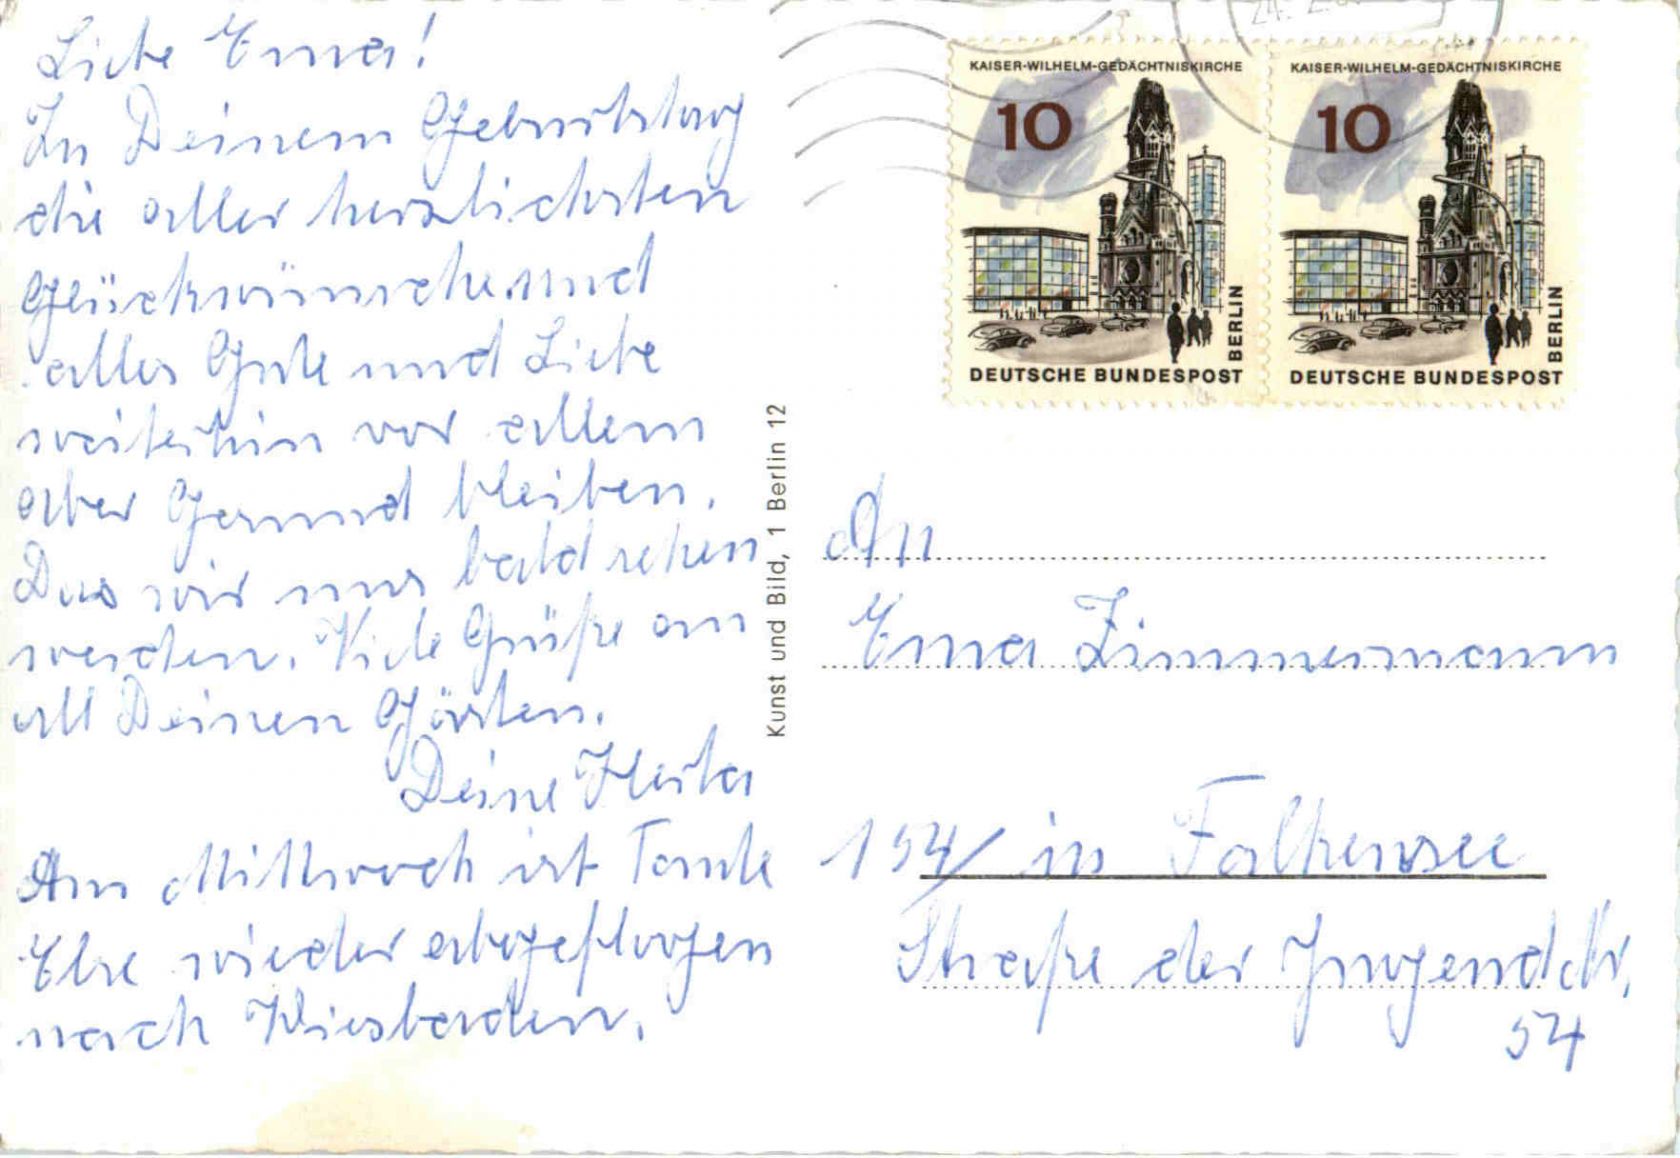 Liebe Erna!
Zu Deinem Geburtstag
die aller herzlichsten
Glückwünsche und
alles Gute und Liebe
weiterhin vor allem
aber Gesund bleiben.
Das wir uns bald sehen
werden. Viele Grüße an
all Deinen Gästen.
Deine Herta
Am Mittwoch ist Tante
Else wieder abgeflogen
nach Wiesbaden.
Kunst und Bild, 1 Berlin 12
KAISER-WILHELM-GEDÄCHTNISKIRCHE
10
BERLIN
DEUTSCHE BUNDESPOST
KAISER-WILHELM-GEDÄCHTNISKIRCHE
10
BERLIN
DEUTSCHE BUNDESPOST
An
Erna Zimmermann
154/ in Falkensee
Straße der Jugend
54